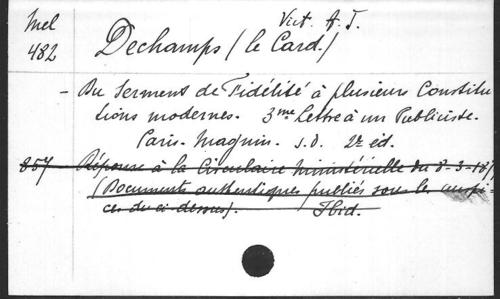 Mel Vict. A. J.
482 Dechamps (le Card.)
- Du Serment de Fidélité à plusieurs Constitu
tions modernes. 3me Lettre à un Publiciste.
Paris. Magnin. s.d. 2e éd.
857 Réponse à la Circulaire Ministérielle du 8-3-18
(Documents authentiques publiés sous les auspi-
ces du ci-dessus). Ibid.